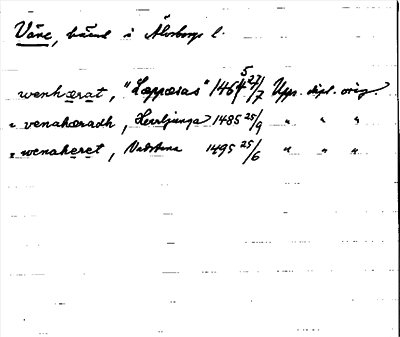 Väne, härad i Älvsborgs l.
wenhærat, "Læppæsas" 1464 5 27/7 Upps. dipl. orig.
" venahæradh, Herrljunga 1485 25/9 " " "
" wenaheret, Vadstena 1495 25/6 " " "